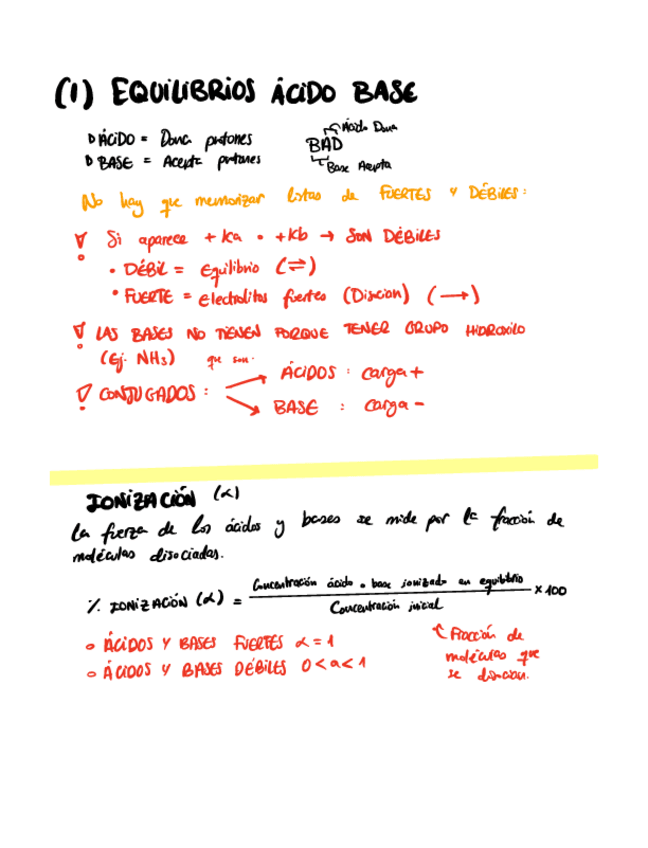 (1) EQUILIBRIOS ÁCIDO BASE
ÁCIDO = Dona protones
BASE = Acepta protones
Ácido Dona
BAD
Base Acepta
No hay que memorizar listas de FUERTES Y DÉBILES:
Si aparece + Ka o + Kb → SON DÉBILES
• DÉBIL = Equilibrio (⇌)
• FUERTE = electrolitos fuertes (Disocian) (→)
LAS BASES NO TIENEN PORQUE TENER GRUPO HIDROXILO
(Ej. NH3) que son:
CONJUGADOS:
ÁCIDOS : carga +
BASE : carga -
IONIZACIÓN (α)
La fuerza de los ácidos y bases se mide por la fracción de
moléculas disociadas.
% IONIZACIÓN (α) = Concentración ácido o base ionizado en equilibrio / Concentración inicial × 100
ÁCIDOS Y BASES FUERTES α = 1
ÁCIDOS Y BASES DÉBILES 0 < α < 1
Fracción de
moléculas que
se disocian.